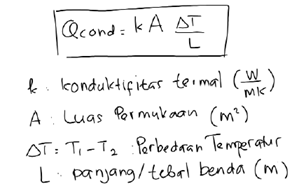 Qcond = k A ΔT/L
k : konduktifitas termal (W/mK)
A : Luas Permukaan (m²)
ΔT = T₁ - T₂ : Perbedaan Temperatur
L : panjang/tebal benda (m)